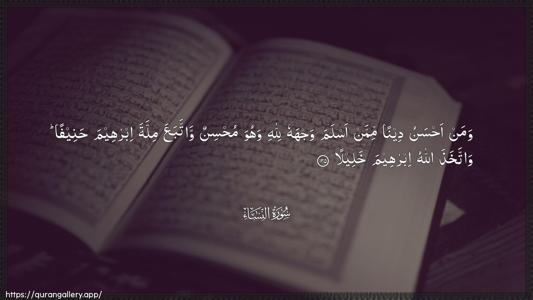 وَمَنْ اَحْسَنُ دِيْنًا مِّمَّنْ اَسْلَمَ وَجْهَهٗ لِلّٰهِ وَهُوَ مُحْسِنٌ وَّاتَّبَعَ مِلَّةَ اِبْرٰهِيْمَ حَنِيْفًا ؕ
وَاتَّخَذَ اللّٰهُ اِبْرٰهِيْمَ خَلِيْلًا ۝١٢٥
سُوْرَةُ النِّسَآء
https://qurangallery.app/